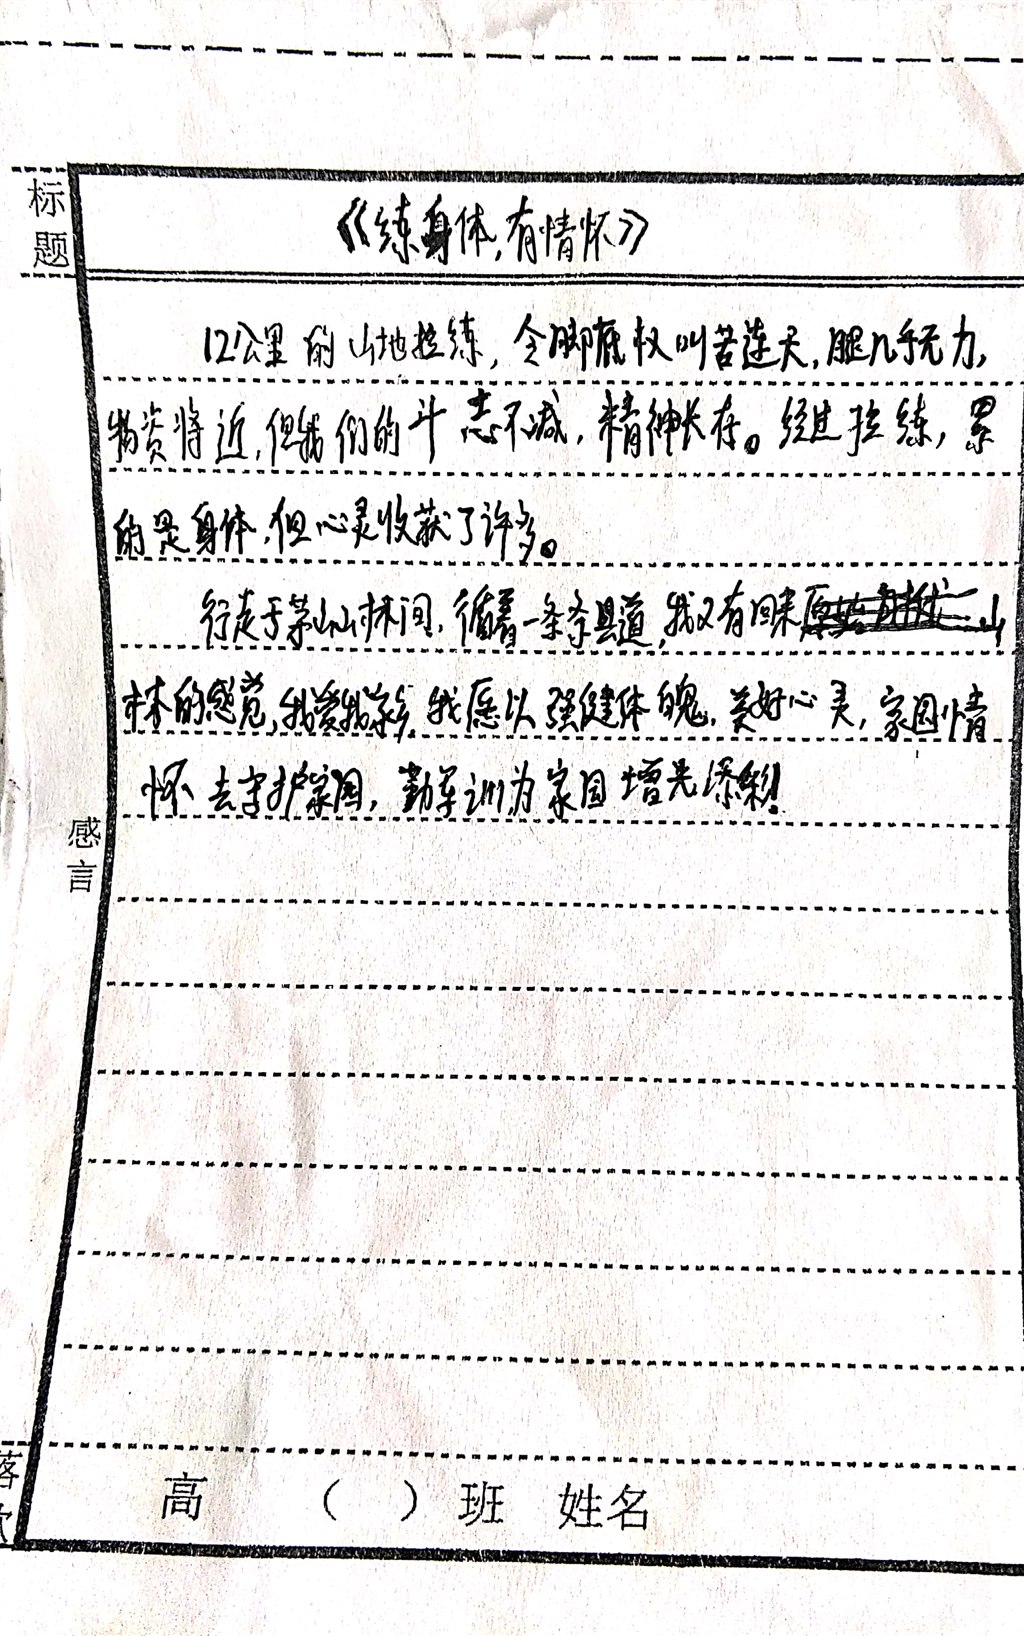 标题
《练身体,有情怀》
12公里的山地拉练,令脚底板叫苦连天,腿几乎无力,
物资将近,但我们的斗志不减,精神长存。经过拉练,累
的是身体,但心灵收获了许多。
行走于茅山山林间,循着一条条县道,我又有回来山
林的感觉,我爱我家乡,我愿以强健体魄,美好心灵,家国情
怀去守护家国,勤军训为家国增光添彩!
感言
落款
高 ( ) 班 姓名